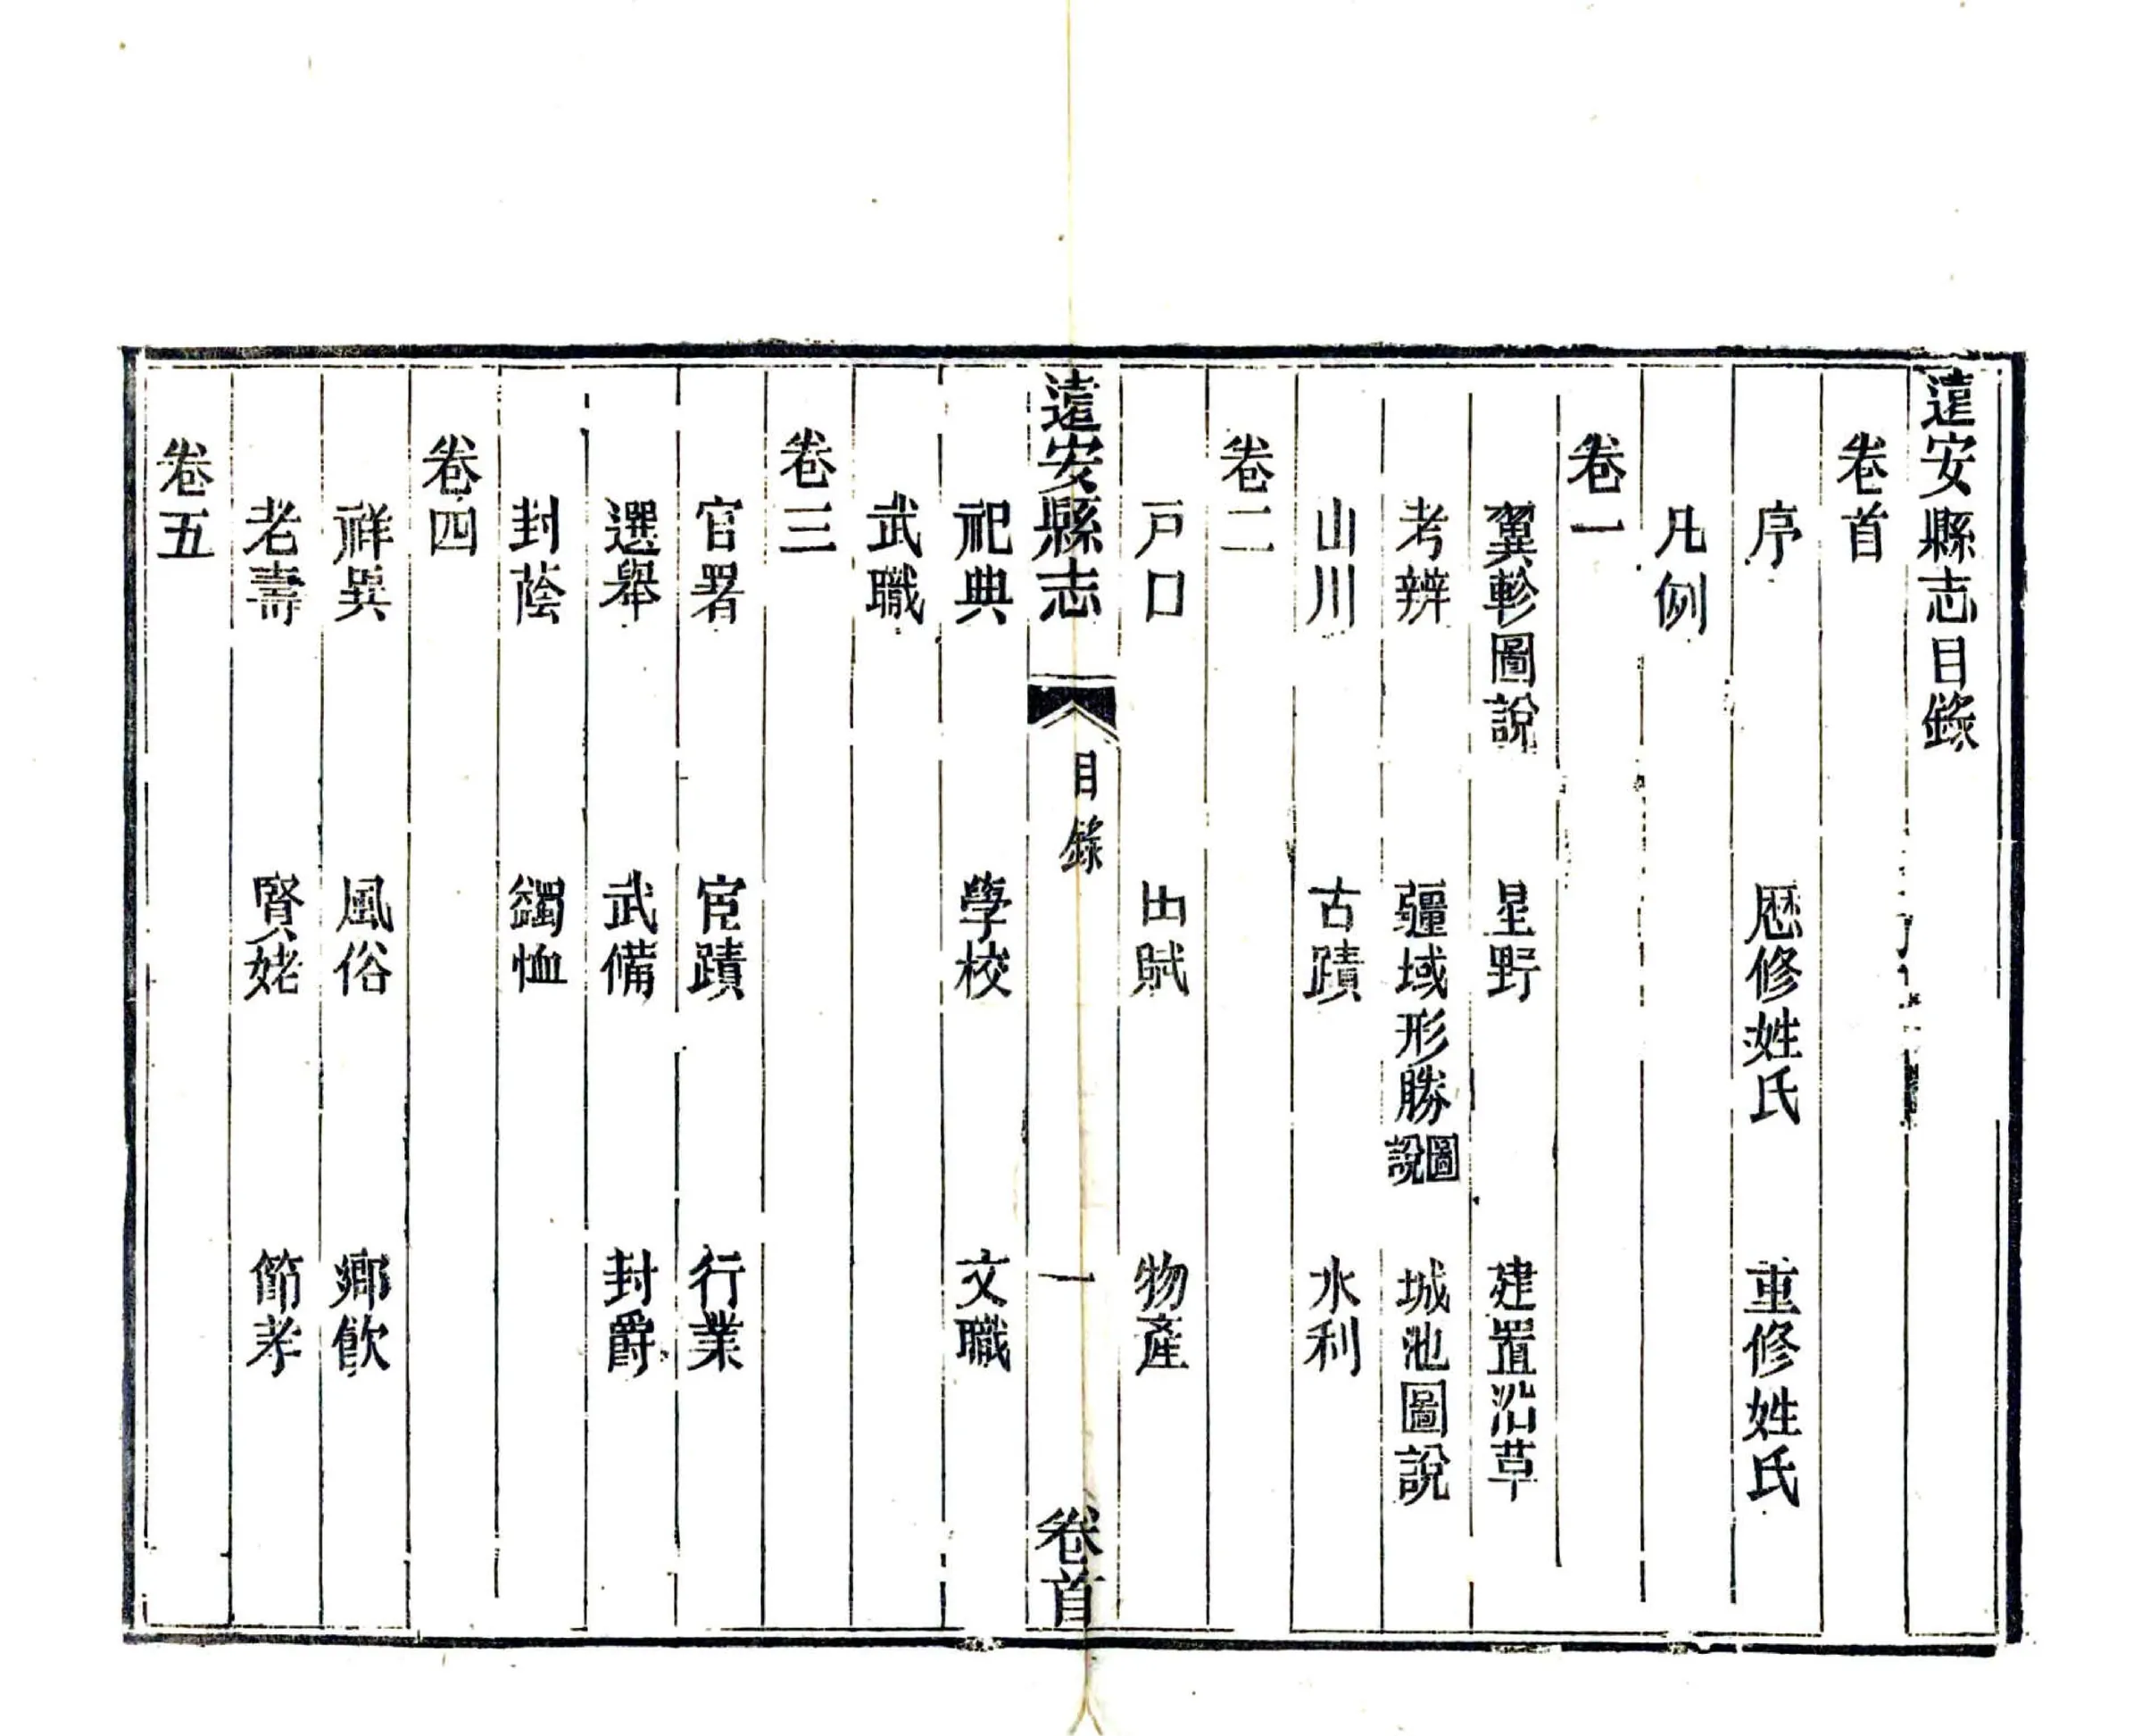 遠安縣志目錄
卷首
序 歷修姓氏 重修姓氏
凡例
卷一
翼軫圖說 星野 建置沿革
考辨 疆域形勝圖說 城池圖說
山川 古蹟 水利
卷二
戸口 田賦 物產
遠安縣志 目錄 一 卷首
祀典 學校 文職
武職
卷三
官署 宦蹟 行業
選舉 武備 封爵
封蔭 蠲恤
卷四
祥異 風俗 鄉飲
老壽 賢姥 節孝
卷五